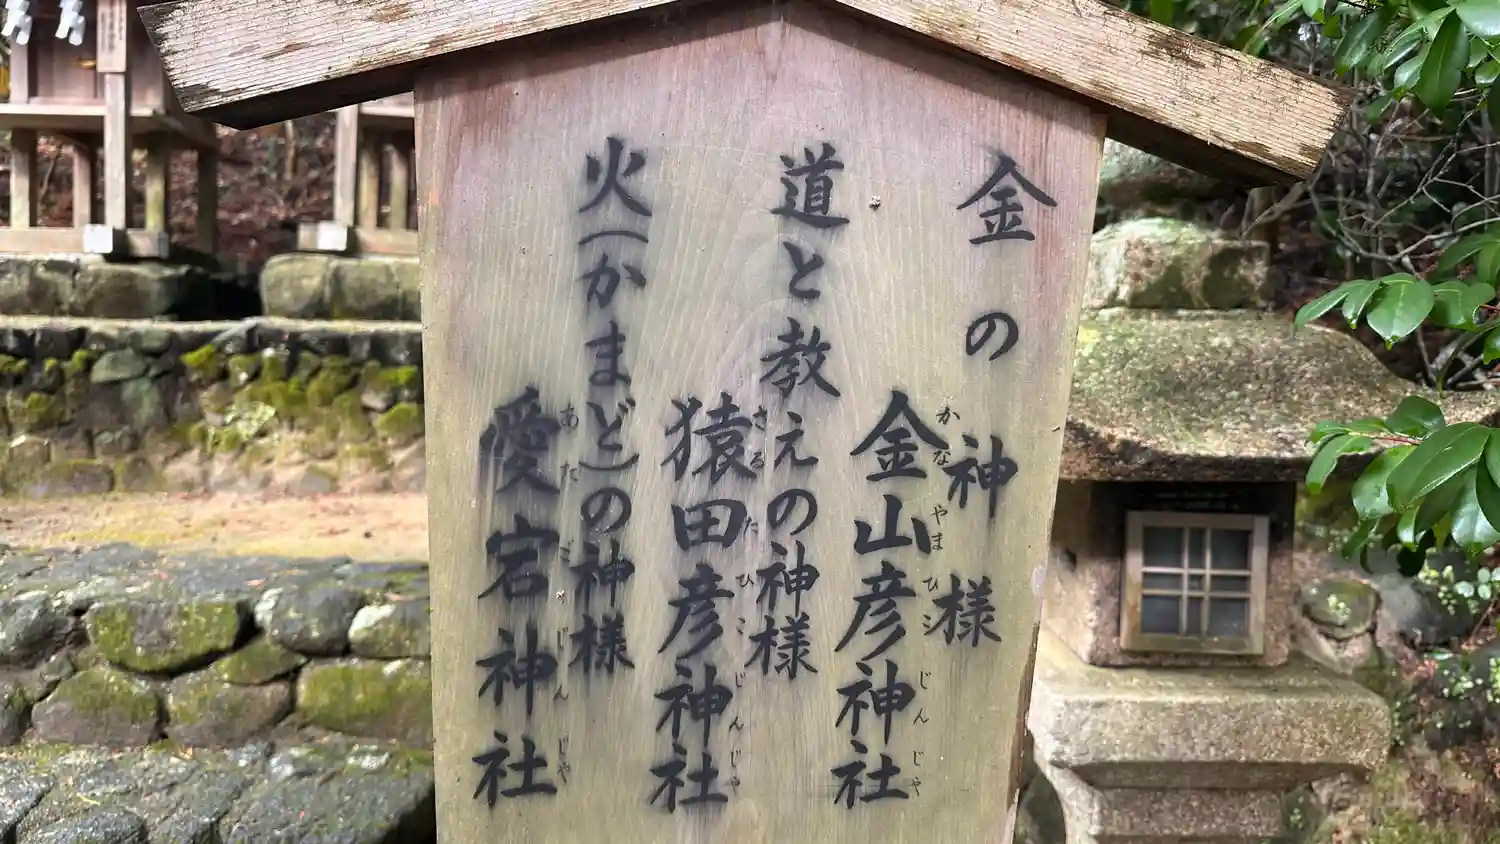 金の神様
金山彦神社
かなやまひこじんじゃ
道と教えの神様
猿田彦神社
さるたひこじんじゃ
火(かまど)の神様
愛宕神社
あたごじんじゃ